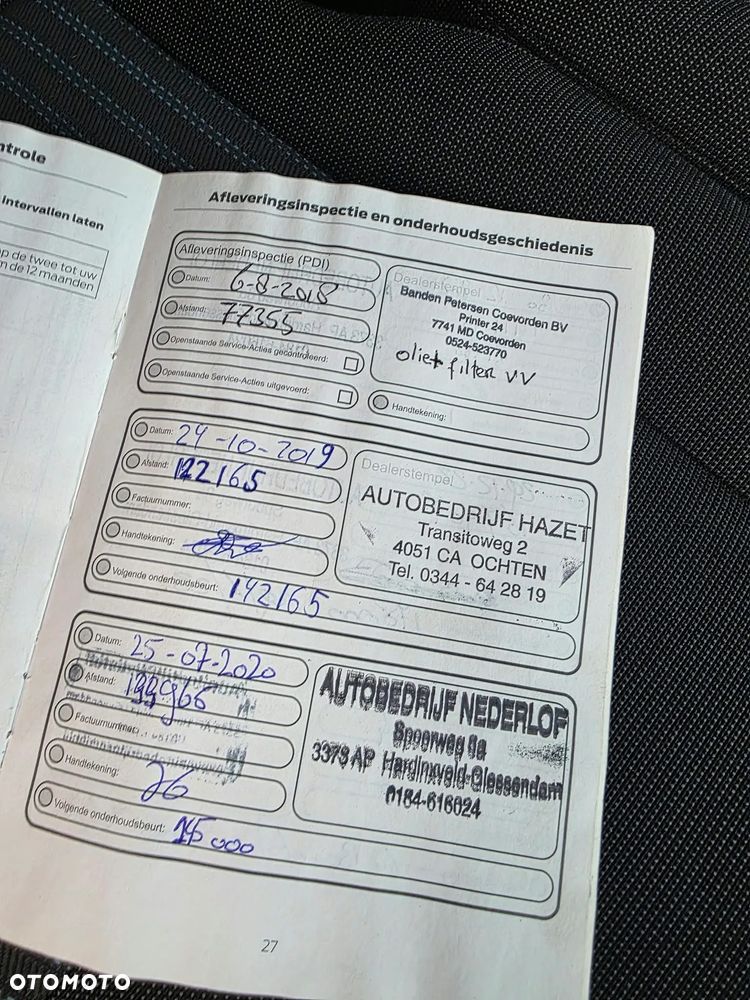 ntrole
intervallen laten
op de twee tot uw
m de 12 maanden
Afleveringsinspectie en onderhoudsgeschiedenis
Afleveringsinspectie (PDI)
Datum: 6-8-2018
Afstand: 77355
Openstaande Service-Acties gecontroleerd:
Openstaande Service-Acties uitgevoerd:
Dealerstempel
Banden Petersen Coevorden BV
Printer 24
7741 MD Coevorden
0524-523770
olie+ filter VV
Handtekening:
Datum: 24-10-2019
Afstand: 122165
Factuurnummer:
Handtekening:
Volgende onderhoudsbeurt: 142165
Dealerstempel
AUTOBEDRIJF HAZET
Transitoweg 2
4051 CA OCHTEN
Tel. 0344 - 64 28 19
Datum: 25-07-2020
Afstand:
Factuurnummer:
Handtekening:
Volgende onderhoudsbeurt:
AUTOBEDRIJF NEDERLOF
Spoorweg
3373 AP Hardinxveld-Giessendam
0184-616024
27
OTOMOTO